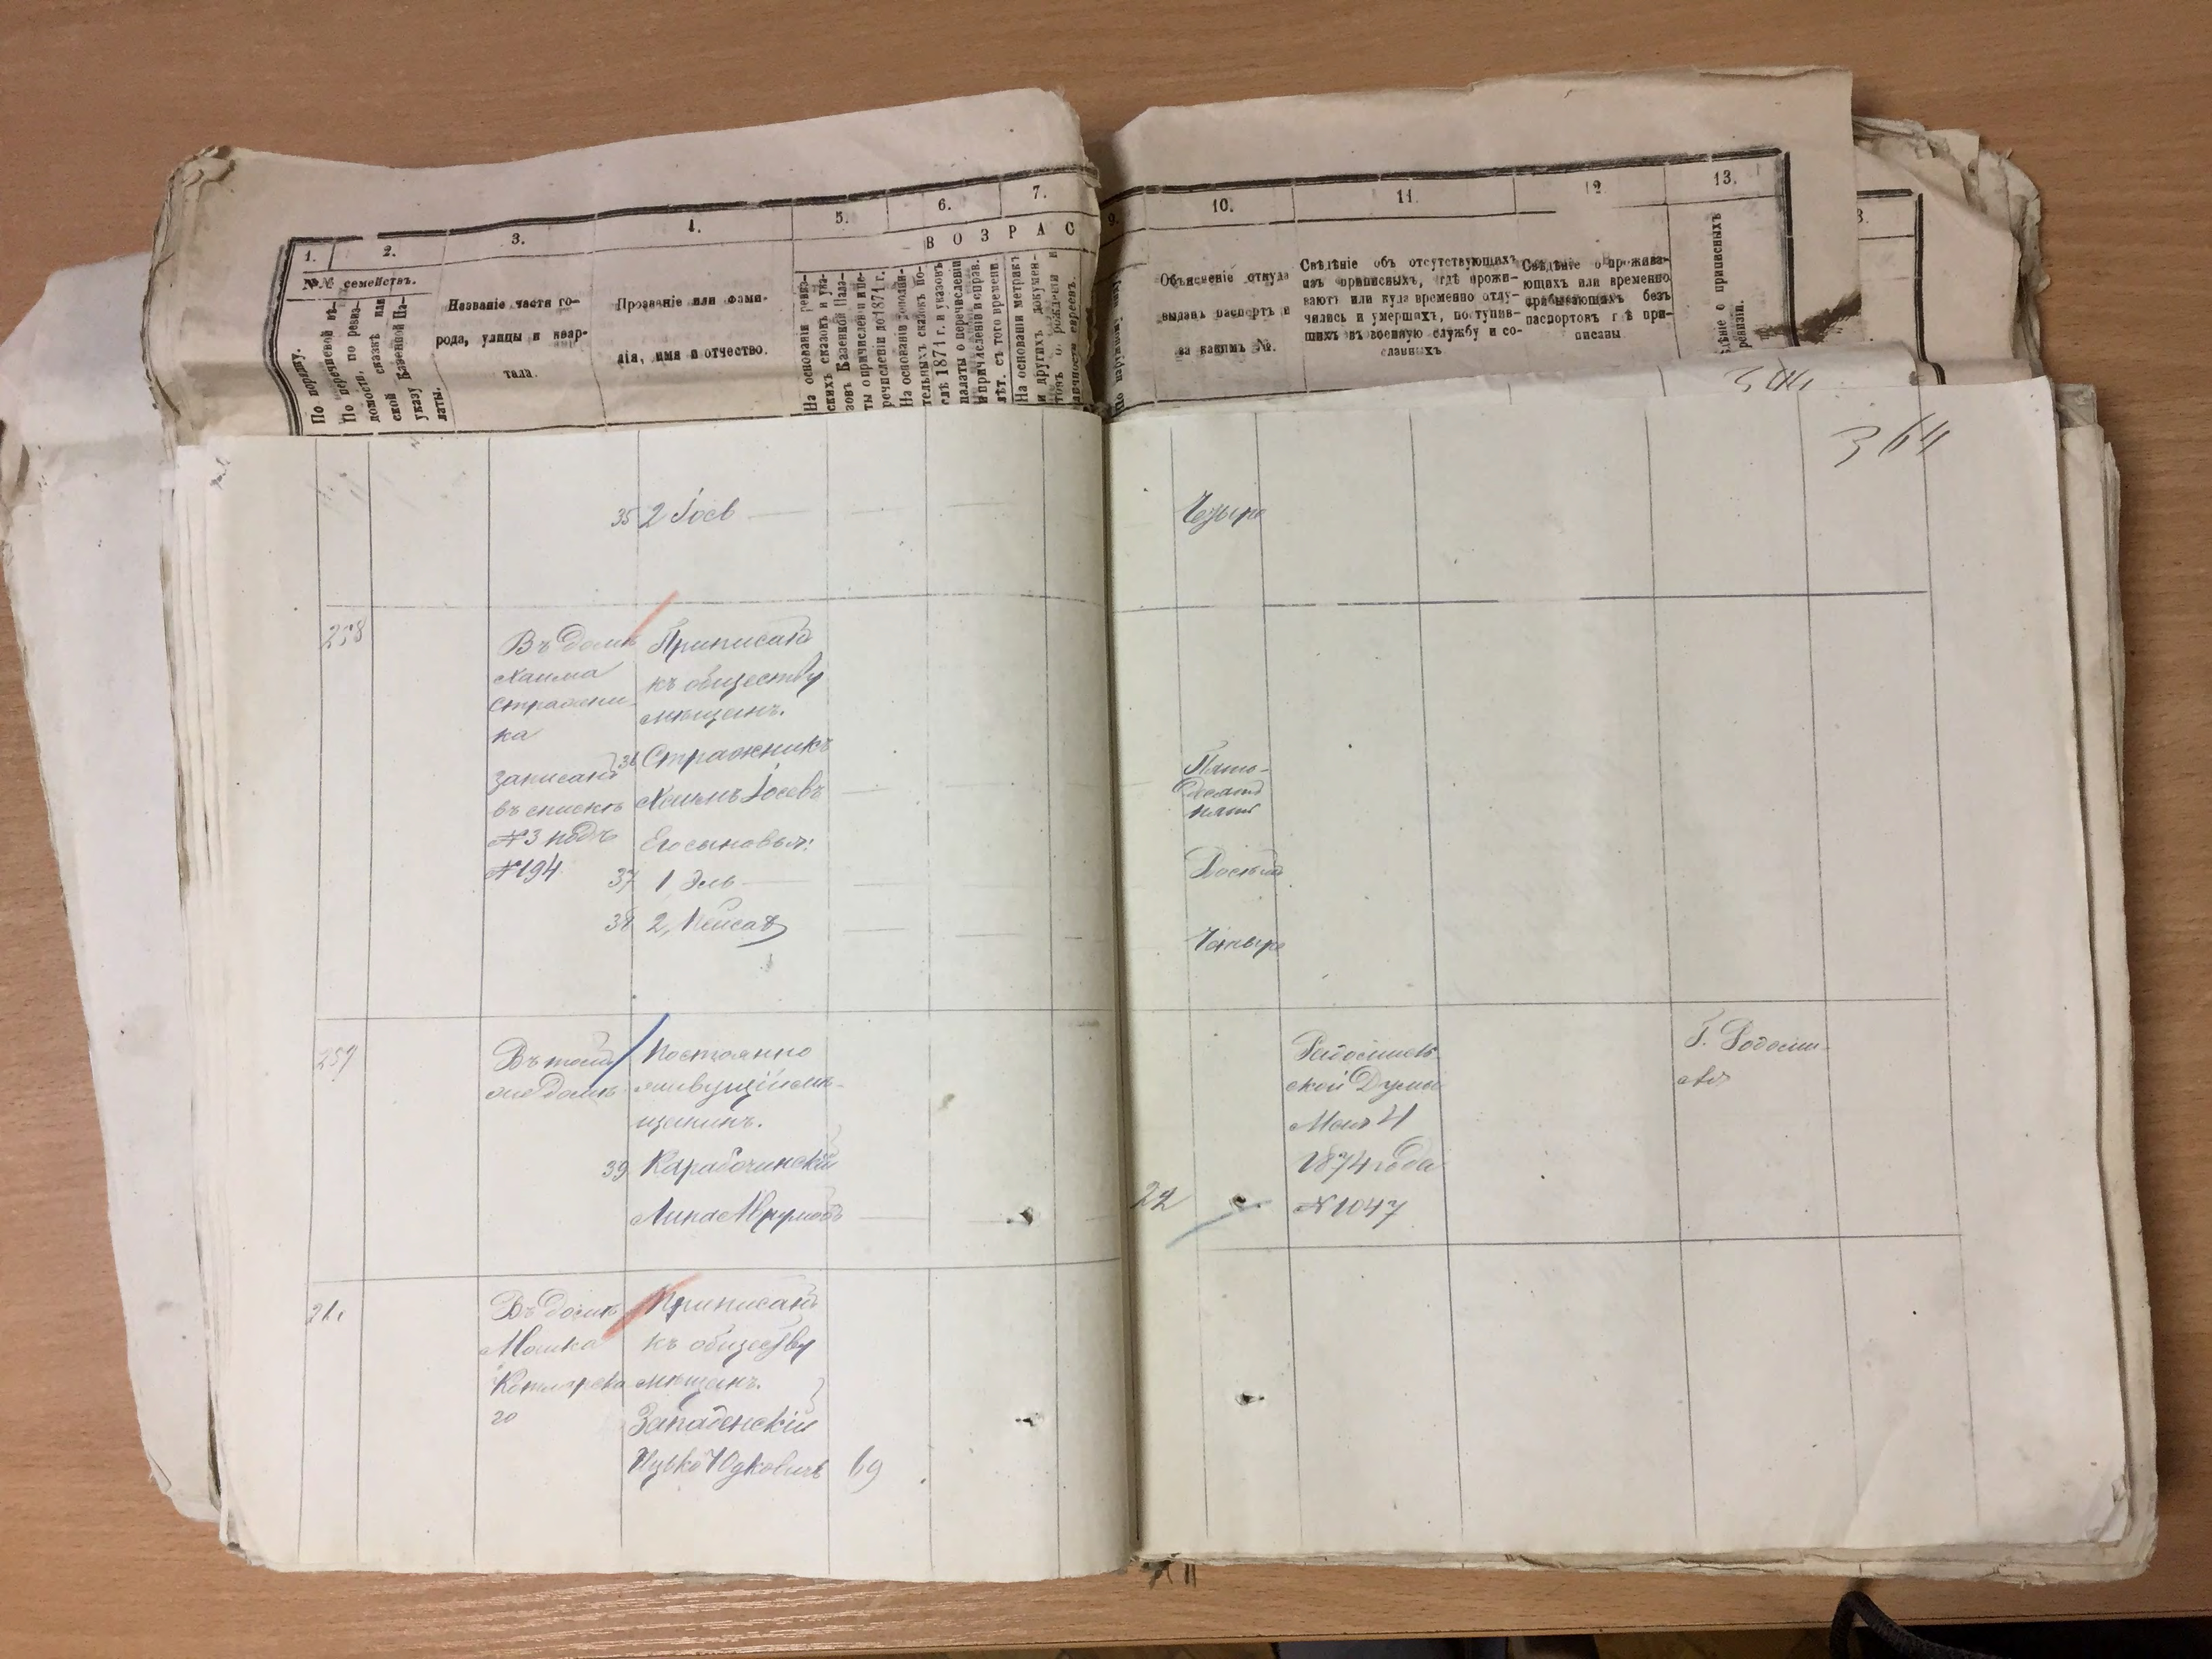 1.
2.
3.
4.
5.
6.
7.
В О З Р А С
№№ семействъ.
По порядку.
По перечневой вѣ-
домости, по ревиз-
ской сказкѣ или
указу Казенной Па-
латы.
Названіе части го-
рода, улицы и квар-
тала.
Прозваніе или фами-
лія, имя и отчество.
На основаніи ревиз-
скихъ сказокъ и ука-
зовъ Казенной Пала-
ты о причисленіи и пе-
речисленіи до 1871 г.
На основаніи дополни-
тельныхъ сказокъ по-
слѣ 1871 г. и указовъ
палаты о перечисленіи
и причисленіи и справ.
лѣт. съ того времени.
На основаніи метрик
и другихъ докумен-
товъ о рожденіи и
личности евреевъ.
9.
10.
11.
12
13.
3.
По наружному виду.
Объясненіе откуда
выданъ паспортъ и
за какимъ №.
Свѣдѣніе объ отсутствующихъ
изъ приписныхъ, гдѣ прожи-
ваютъ или куда временно отлу-
чились и умершихъ, поступив-
шихъ въ военную службу и со-
сланныхъ
Свѣдѣніе о прожива-
ющихъ или временно
пребывающихъ безъ
паспортовъ гдѣ при-
писаны
дѣніе о приписныхъ
ревизіи.
364
35 2 Іосъ
Четыре
258
Въ домѣ
Хаима
Стражни-
ка
записанъ
въ спискѣ
№3 подъ
№194
Приписанъ
къ обществу
мѣщанъ.
36 Стражникъ
Хаимъ Іосевъ
Его сыновья:
37 1 Эль
38 2, Пейсахъ
Пять-
десятъ
пять
Восемь
Четыре
259
Въ томъ
же домѣ
Постоянно
живущій мѣ-
щанинъ.
39 Карабочинскій
Липа Аврумовъ
22
Радомысль-
ской Думы
Мая 21
1874 года
№1047
Г. Радомы-
сль
Въ домѣ
Мошка
Котлярева
20
Приписанъ
къ обществу
мѣщанъ.
Западенскій
Ицько Юдковичъ
69